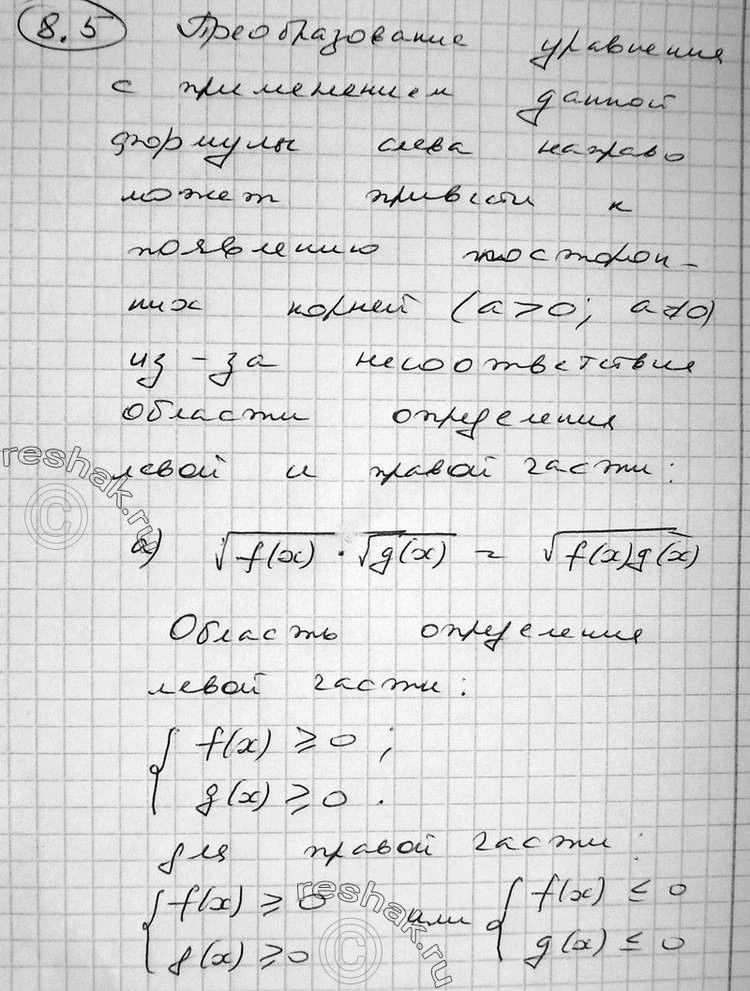 8.5 Преобразование уравнения
с применением данной
формулы слева направо
может привести к
появлению посторон-
них корней (a>0; a≠0)
из-за несоответствия
области определения
левой и правой части:
а) √f(x) · √g(x) = √f(x)g(x)
Область определения
левой части:
{ f(x) ≥ 0 ;
g(x) ≥ 0 .
для правой части:
{ f(x) ≥ 0 или { f(x) ≤ 0
g(x) ≥ 0 g(x) ≤ 0
reshak.ru
reshak.ru